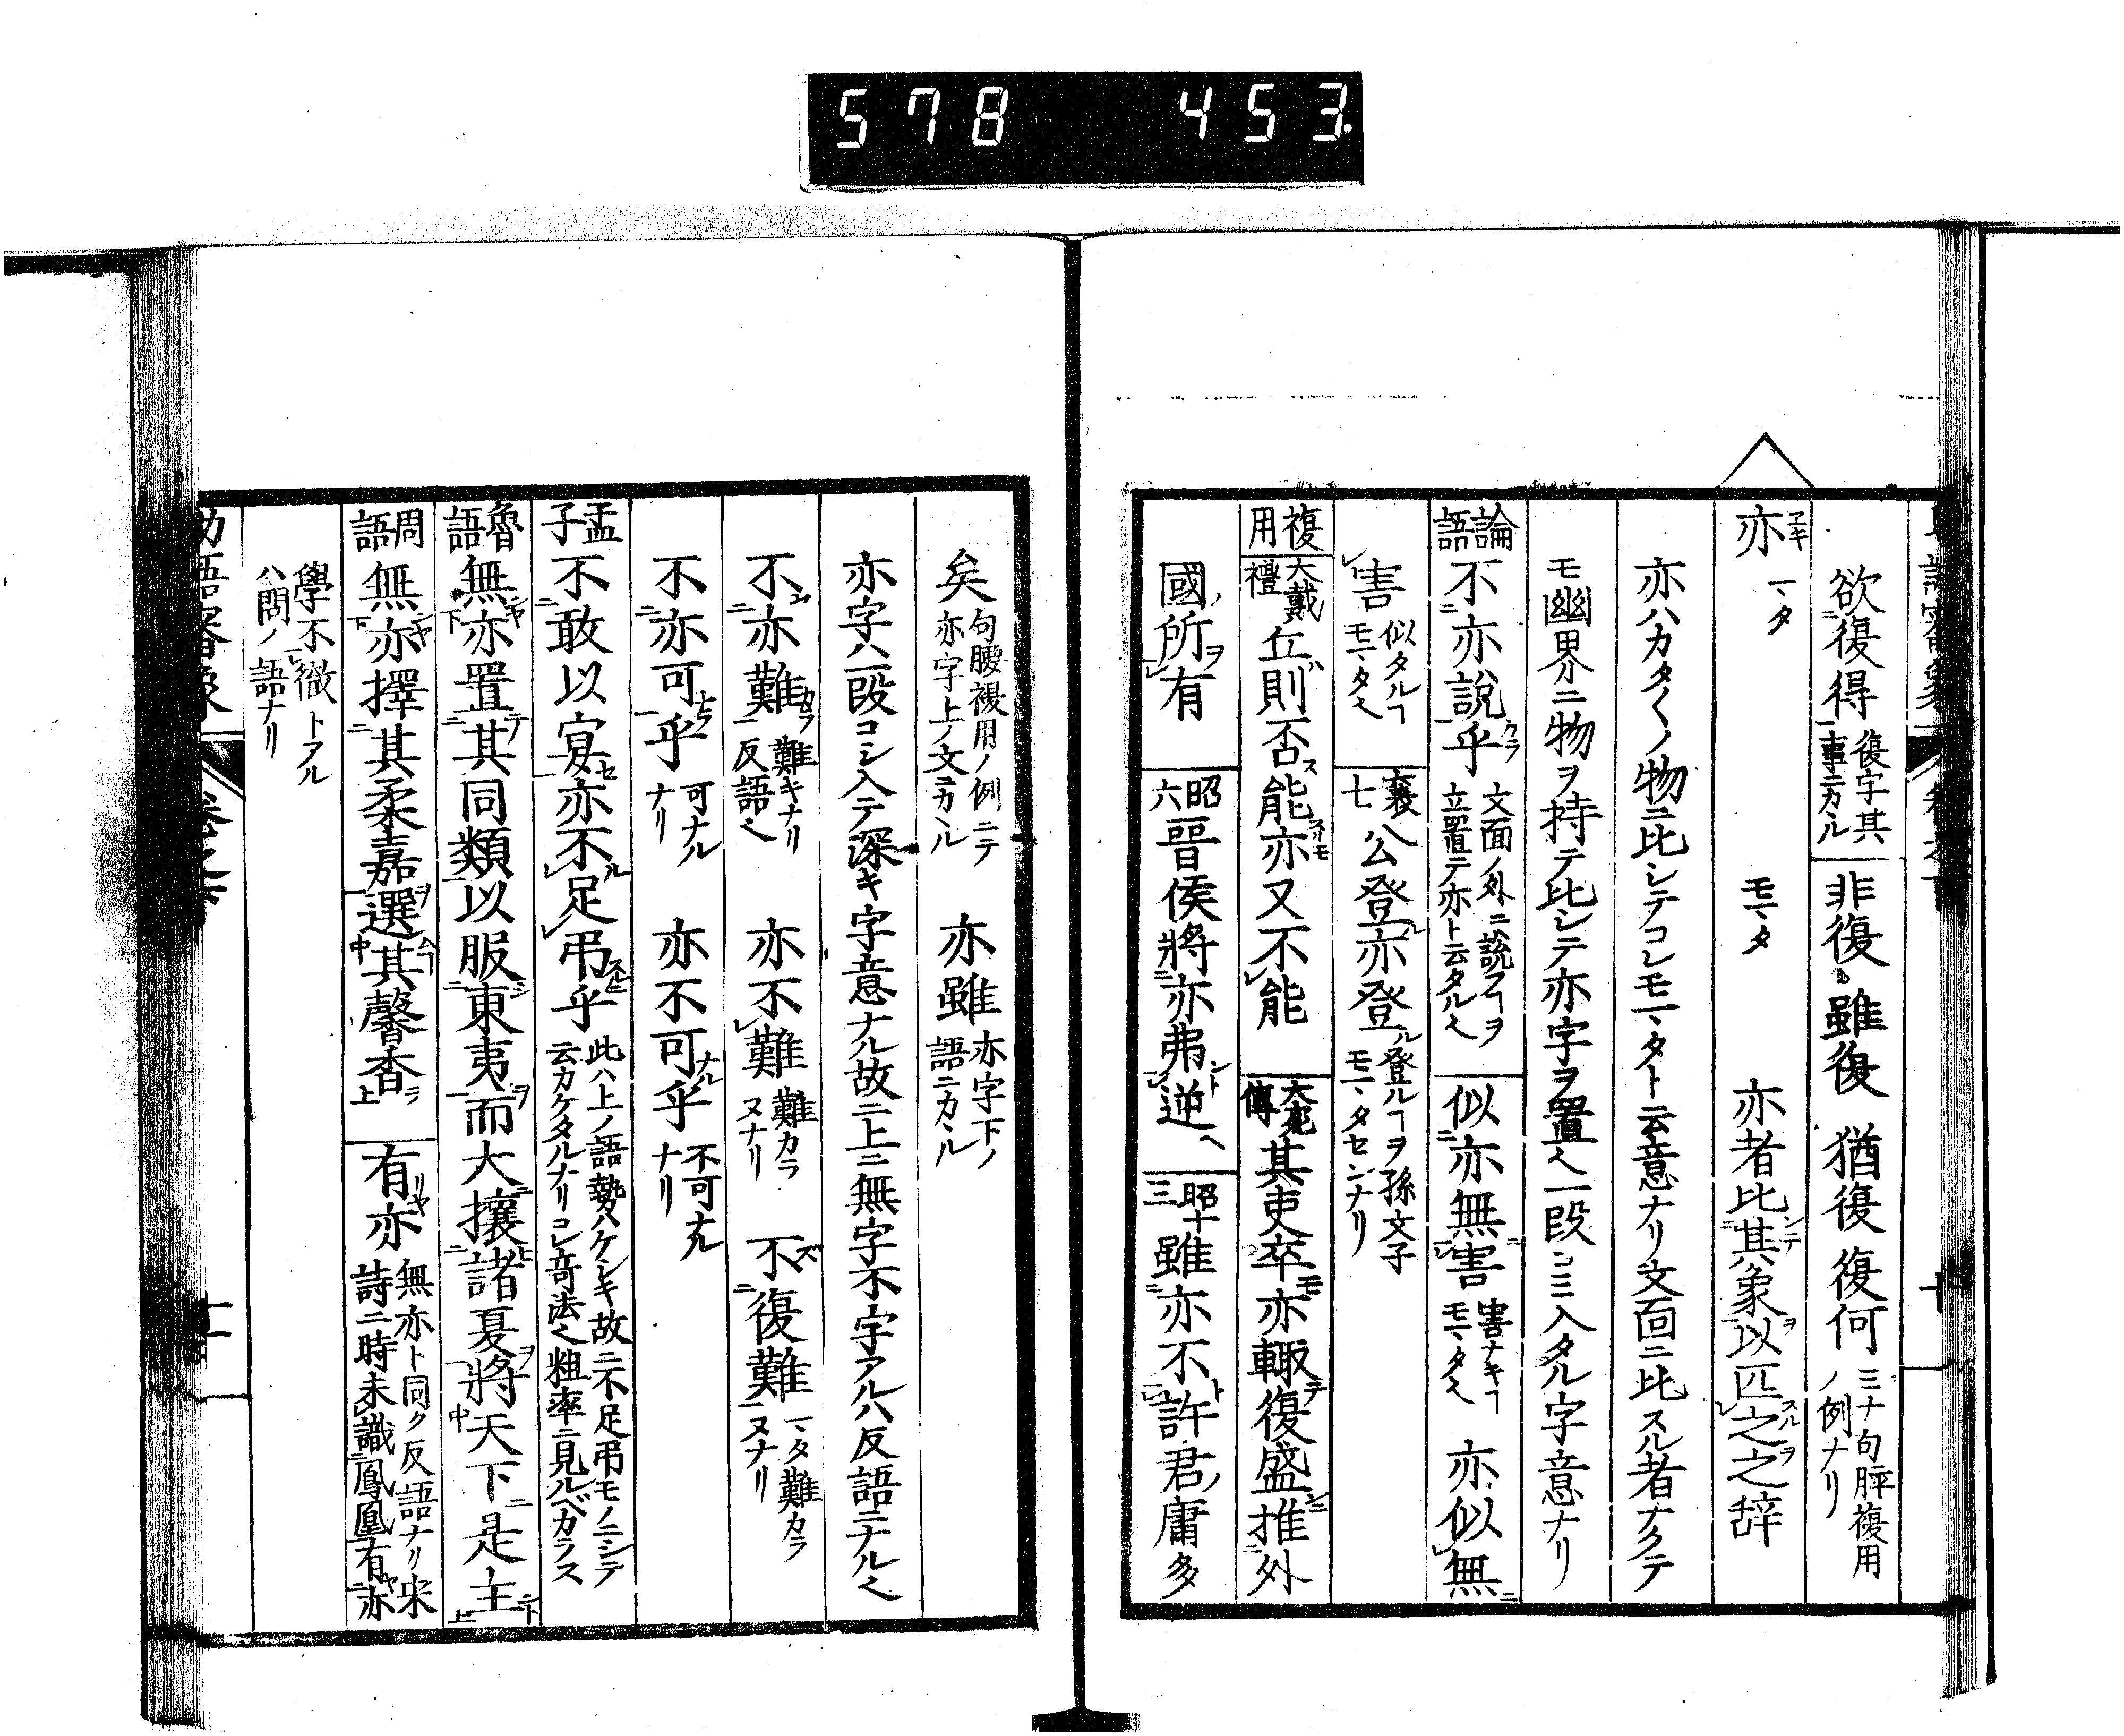 578 453.
欲復得 復字其一事ニカヽル 非復 雖復 猶復 復何 三ナ句腰複用ノ例ナリ
亦 エキ マタ モマタ 亦者比其象以匹之之辞
亦ハカタ〳〵ノ物ニ比シテコレモマタト云意ナリ文面ニ比スル者ナクテ
モ幽界ニ物ヲ持テ比シテ亦字ヲ置ク一段コミ入タル字意ナリ
論語 不亦説乎 文面ノ外ニ説フヿヲ立置テ亦ト云タル也 似亦無害 害ナキヿモマタ也 亦似無
害 似タルヿモマタ也 襄七 公登亦登 登ルヿヲ孫文子モマタセンナリ
複用 大戴禮 丘則否能亦又不能 大宛傳 其吏卒亦輙復盛推外
國所有 昭六 晉侯將亦弗逆 昭十三 雖亦不許君庸多
矣 句腰複用ノ例ニテ亦字上ノ文ニカヽル 亦雖 亦字下ノ語ニカヽル
亦字ハ一段コシ入テ深キ字意ナル故ニ上ニ無字不字アルハ反語ニナル也
不亦難 難キナリ反語也 亦不難 難カラヌナリ 不復難 マタ難カラヌナリ
不亦可乎 可ナルナリ 亦不可乎 不可ナルナリ
孟子 不敢以宴亦不足弔乎 此ハ上ノ語勢ハケシキ故ニ不足弔モノニシテ云カケタルナリコレ奇法也粗率ニ見ルベカラス
魯語 無亦置其同類以服東夷而大攘諸夏將天下是主
周語 無亦擇其柔嘉選其馨香 有亦 無亦ト同ク反語ナリ宋詩ニ時未識鳳凰有亦
學不徴トアルハ問ノ語ナリ